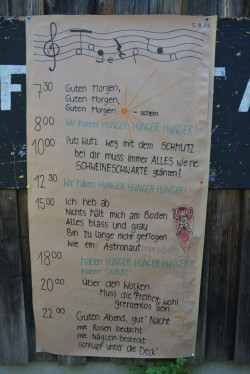 5.8.23
Tagesplan
7 30 Guten Morgen,
Guten Morgen,
Guten Morgen - schein
8 00 Wir haben HUNGER, HUNGER, HUNGER!
10 00 Putz Putz weg mit dem SCHMUTZ
bei dir muss immer ALLES wie ne
SCHWEINESCHWARTE glänzen!
12 30 Wir haben HUNGER, HUNGER, HUNGER!
15 00 Ich heb ab
Nichts hält mich am Boden
Alles blass und grau
Bin zu lange nicht geflogen
wie ein Astronaut
18 00 haben HUNGER HUNGER HUNGER
haben DURST!
20 00 über den Wolken
Muss die Freiheit wohl
grenzenlos sein
22 00 Guten Abend, gut' Nacht
mit Rosen bedacht
mit Näglein besteckt
schlupf unter die Deck'